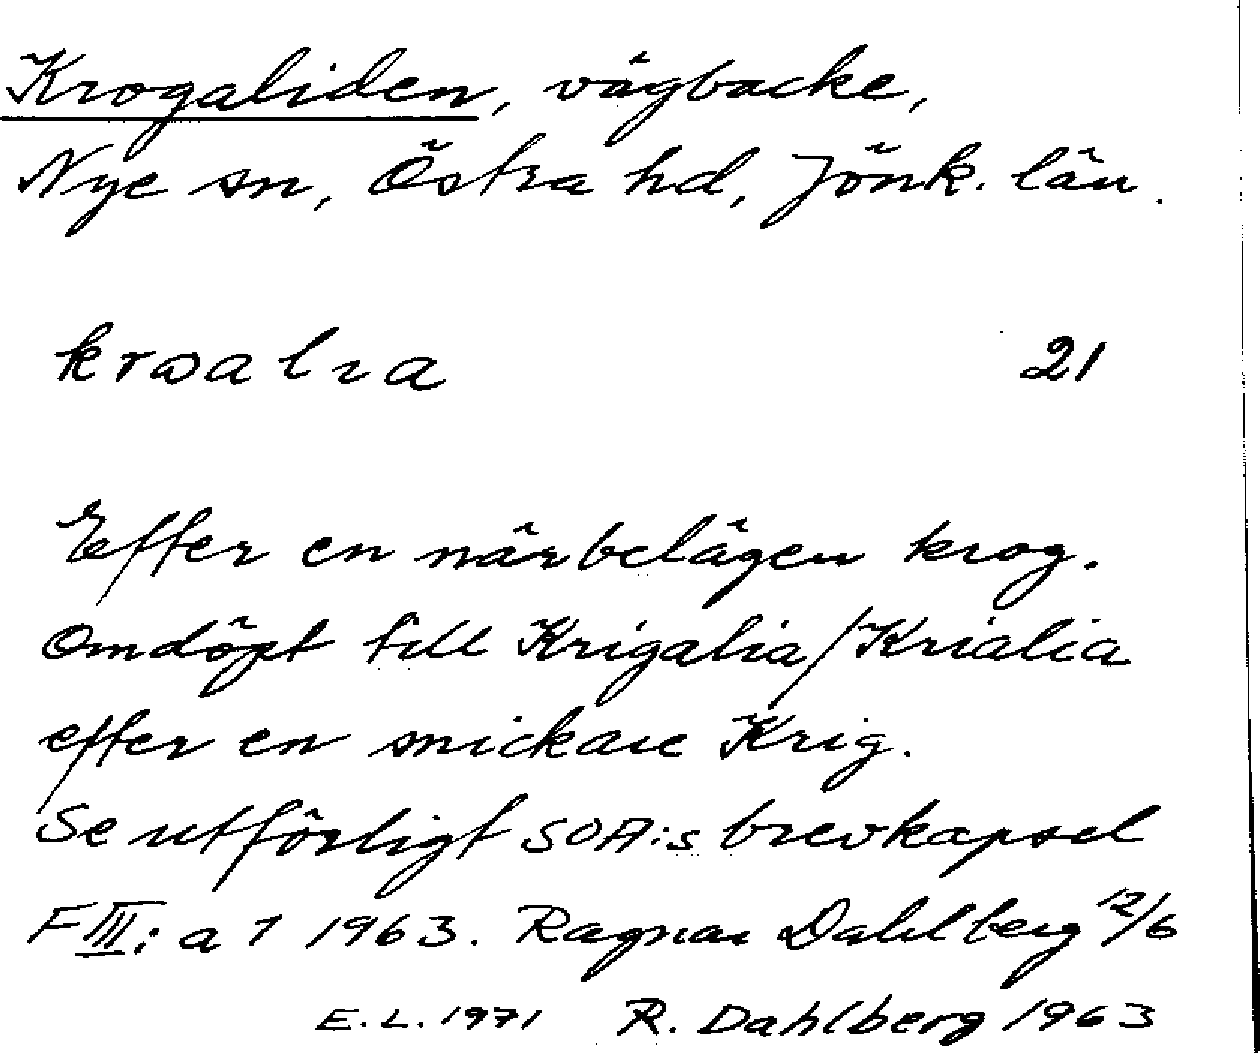 Krogaliden, vägbacke,
Nye sn, Östra hd, Jönk. län.
krωalıa 21
Efter en närbelägen krog.
Omdöpt till Krigalia/Krialia
efter en snickare Krig.
Se utförligt SOA:s brevkapsel
F III: a 7 1963. Ragnar Dahlberg 12/6
E.L. 1971 R. Dahlberg 1963